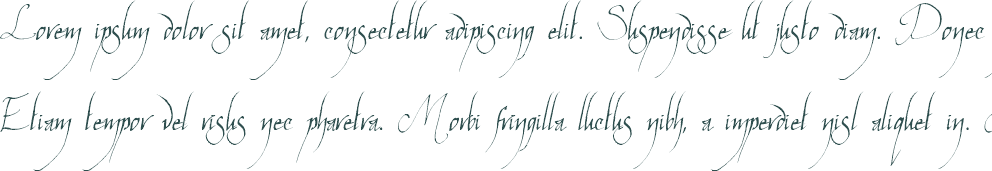 Lorem ipsum dolor sit amet, consectetur adipiscing elit. Suspendisse ut justo diam. Donec
Etiam tempor vel risus nec pharetra. Morbi fringilla luctus nibh, a imperdiet nisl aliquet in.